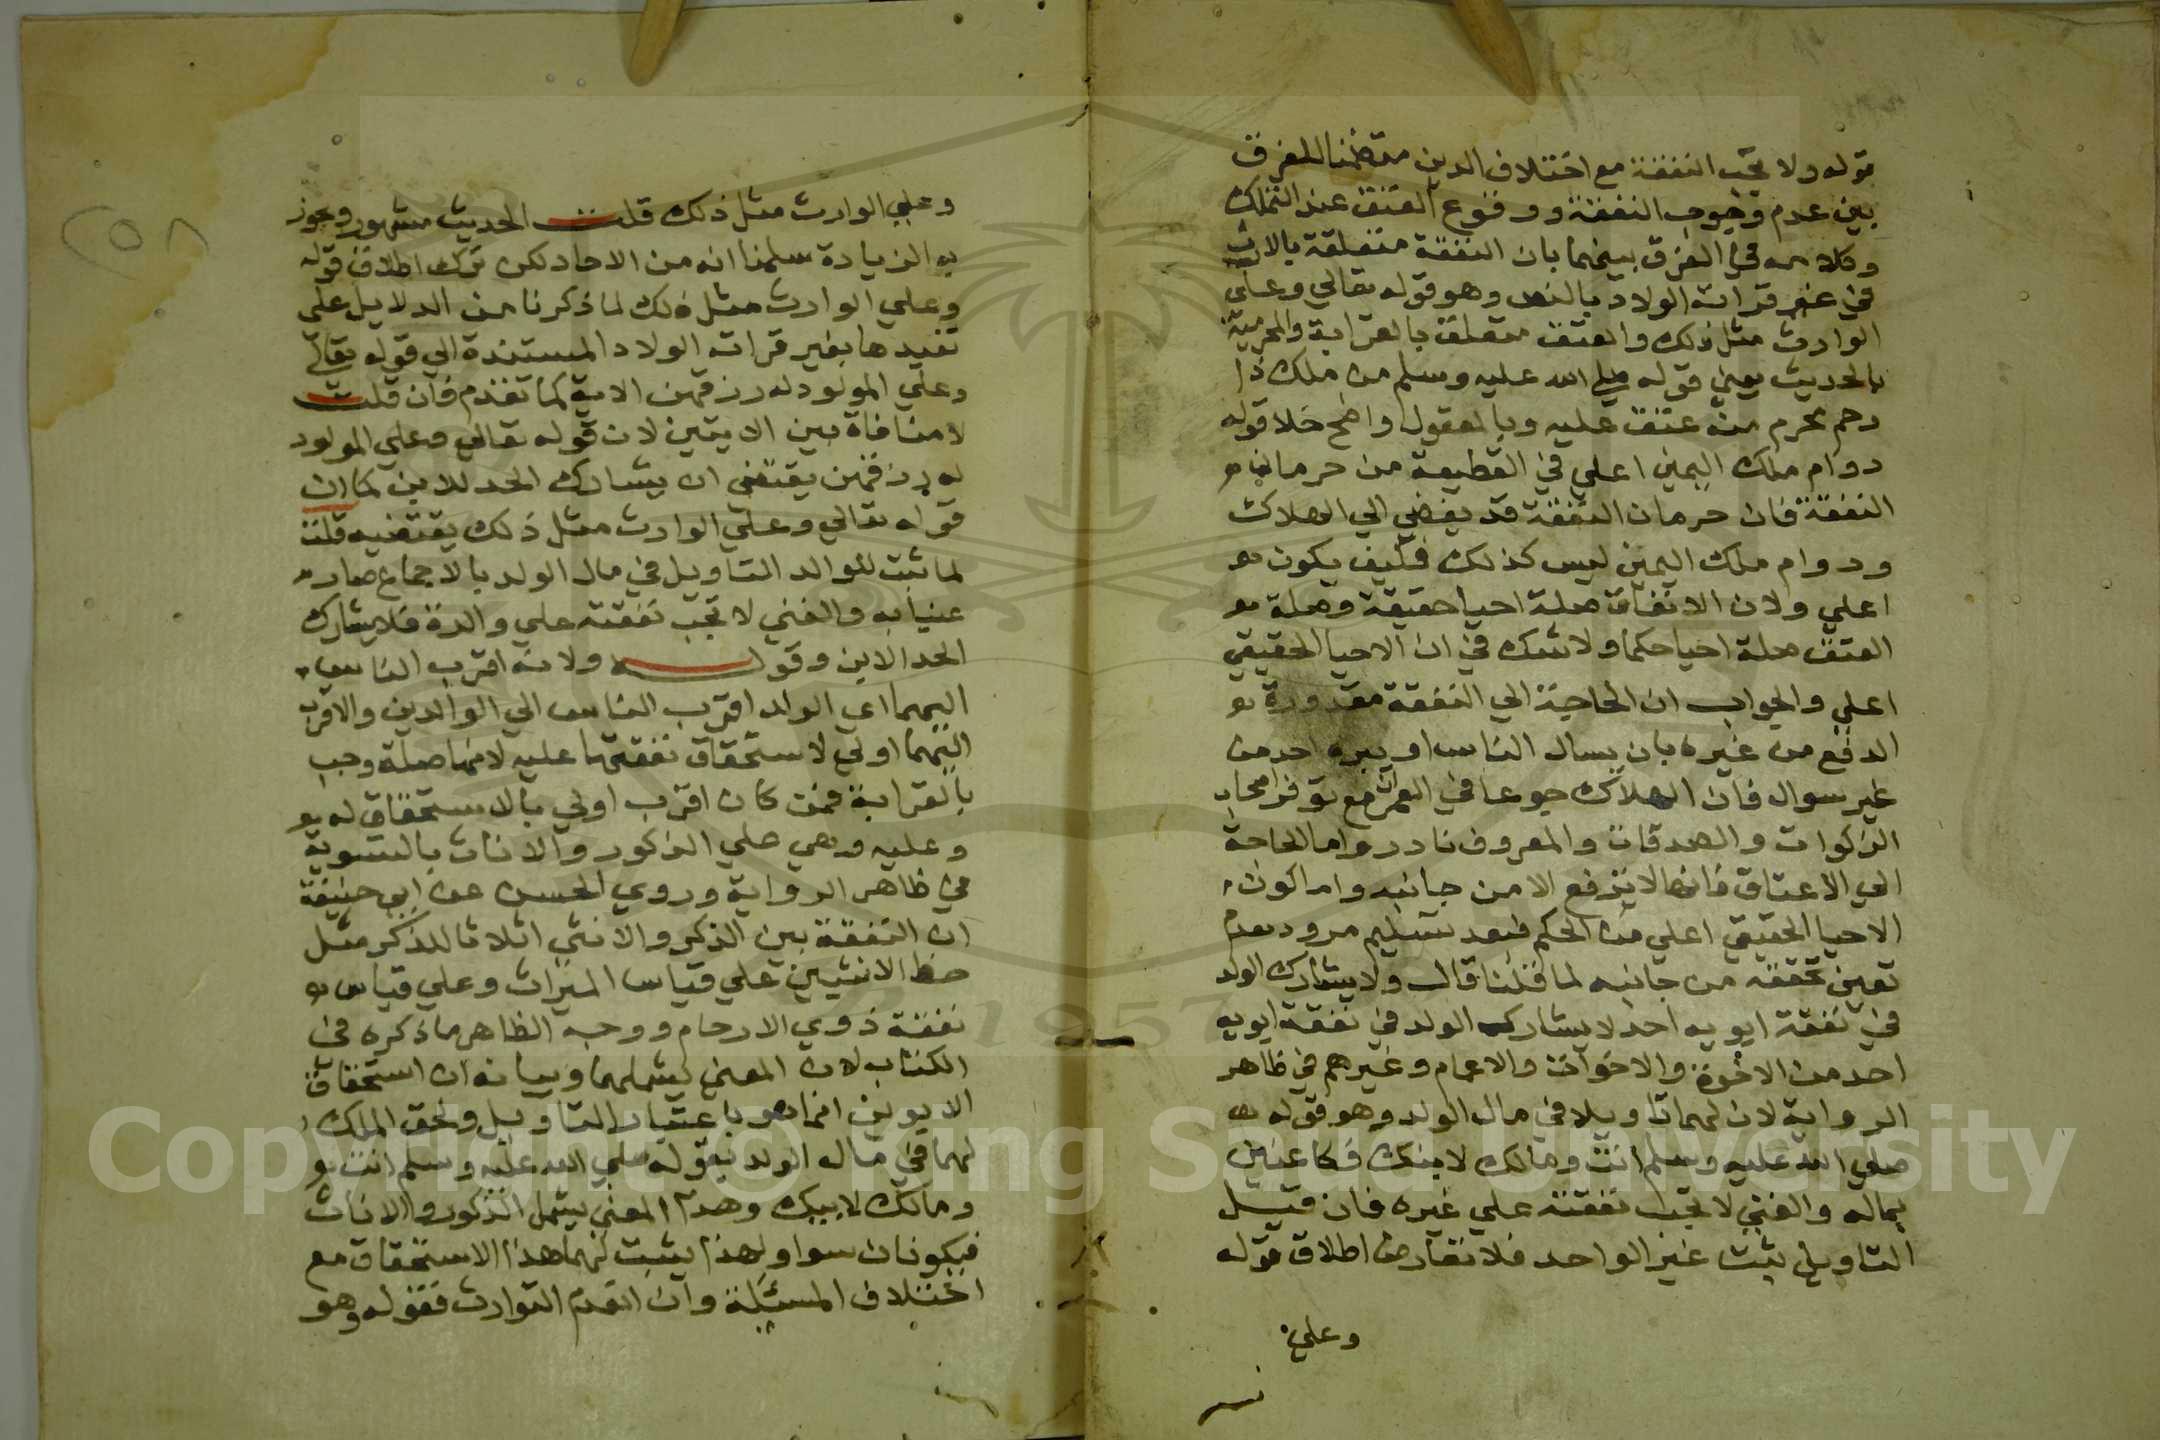 قوله ولا تجب النفقة مع اختلاف الدين متضمنا للفرق
بين عدم وجوب النفقة ووقوع العتق عند التملك
وكلامه في الفرق بينهما بان النفقة متعلقة بالارث
في غير قرابة الولاد بالنص وهو قوله تعالي وعلي
الوارث مثل ذلك والعتق متعلق بالقرابة والمحرمية
بالحديث يعني قوله صلي الله عليه وسلم من ملك ذا
رحم محرم منه عتق عليه وبالمعقول واضح خلا قوله
دوام ملك اليمين اعلي في القطيعة من حرمان
النفقة فان حرمان النفقة قد يفضي الي الهلاك
ودوام ملك اليمين ليس كذلك فكيف يكون
اعلي ولان الانفاق صلة احيا حقيقة وصلة
العتق صلة احيا حكما ولا شك في ان الاحيا الحقيقي
اعلي والجواب ان الحاجة الي النفقة مقدورة
الدفع من غيره بان يسال الناس او يبره احد من
غير سوال فان الهلاك جوعا في العمران مع توفر
الزكوات والصدقات والمعروف نادر واما الحاجة
الي الاعتاق فانها لا تندفع الا من جانبه واما كون
الاحيا الحقيقي اعلي من الحكم فبعد تسليم
تعين تحققه من جانبه لما قلنا قال ولا يشارك الولد
في نفقة ابويه احد لا يشارك الولد في نفقة ابويه
احد من الاخوة والاخوات والاعمام وغيرهم في ظاهر
الرواية لان لهما تاويلا في مال الولد وهو قوله
صلي الله عليه وسلم انت ومالك لابيك فكا غنيين
بماله والغني لا تجب نفقته علي غيره فان قيل
التاويل يثبت عبر الواحد فلا تعارض اطلاق قوله
وعلي
وعلي الوارث مثل ذلك قلت الحديث مشهور ويجوز
به الزيادة سلمنا انه من الاحاد لكن ترك اطلاق قوله
وعلي الوارث مثل ذلك لما ذكرنا من الدلايل علي
تقييدها بغير قرابة الولاد المستندة الي قوله تعالي
وعلي المولود له رزقهن الاية كما تقدم فان قلت
لا منافاة بين الايتين لان قوله تعالي وعلي المولود
له رزقهن يقتضي ان يشارك الجد للابن كما ان
قوله تعالي وعلي الوارث مثل ذلك يقتضيه قلت
لما ثبت للوالد التاويل في مال الولد بالاجماع صار
غنيا به والغني لا تجب نفقته علي والده فلا يشارك
الجد الابن وقوله ولانه اقرب الناس
اليهما اي الولد اقرب الناس الي الوالدين والاقرب
اليهما اولي لاستحقاق نفقتهما عليه لانها صلة وجب
بالقرابة فمن كان اقرب اولي بالاستحقاق له
وعليه وهي علي الذكور والاناث بالتسوية
في ظاهر الرواية وروي الحسن عن ابي حنيفة
ان النفقة بين الذكر والانثي اثلاثا للذكر مثل
حظ الانثيين علي قياس الميراث وعلي قياس
نفقة ذوي الارحام ووجه الظاهر ما ذكره في
الكتاب لان المعني يشملهما وبيانه ان استحقاق
الابوين انما هو باعتبار التاويل وحق الملك
لهما في مال الولد بقوله صلي الله عليه وسلم انت
ومالك لابيك وهذا المعني يشمل الذكور والاناث
فيكونان سوا ولهذا يثبت لهما هذا الاستحقاق مع
اختلاف المسئلة وان انعدم التوارث فقوله وهو
Copyright © King Saud University
1957